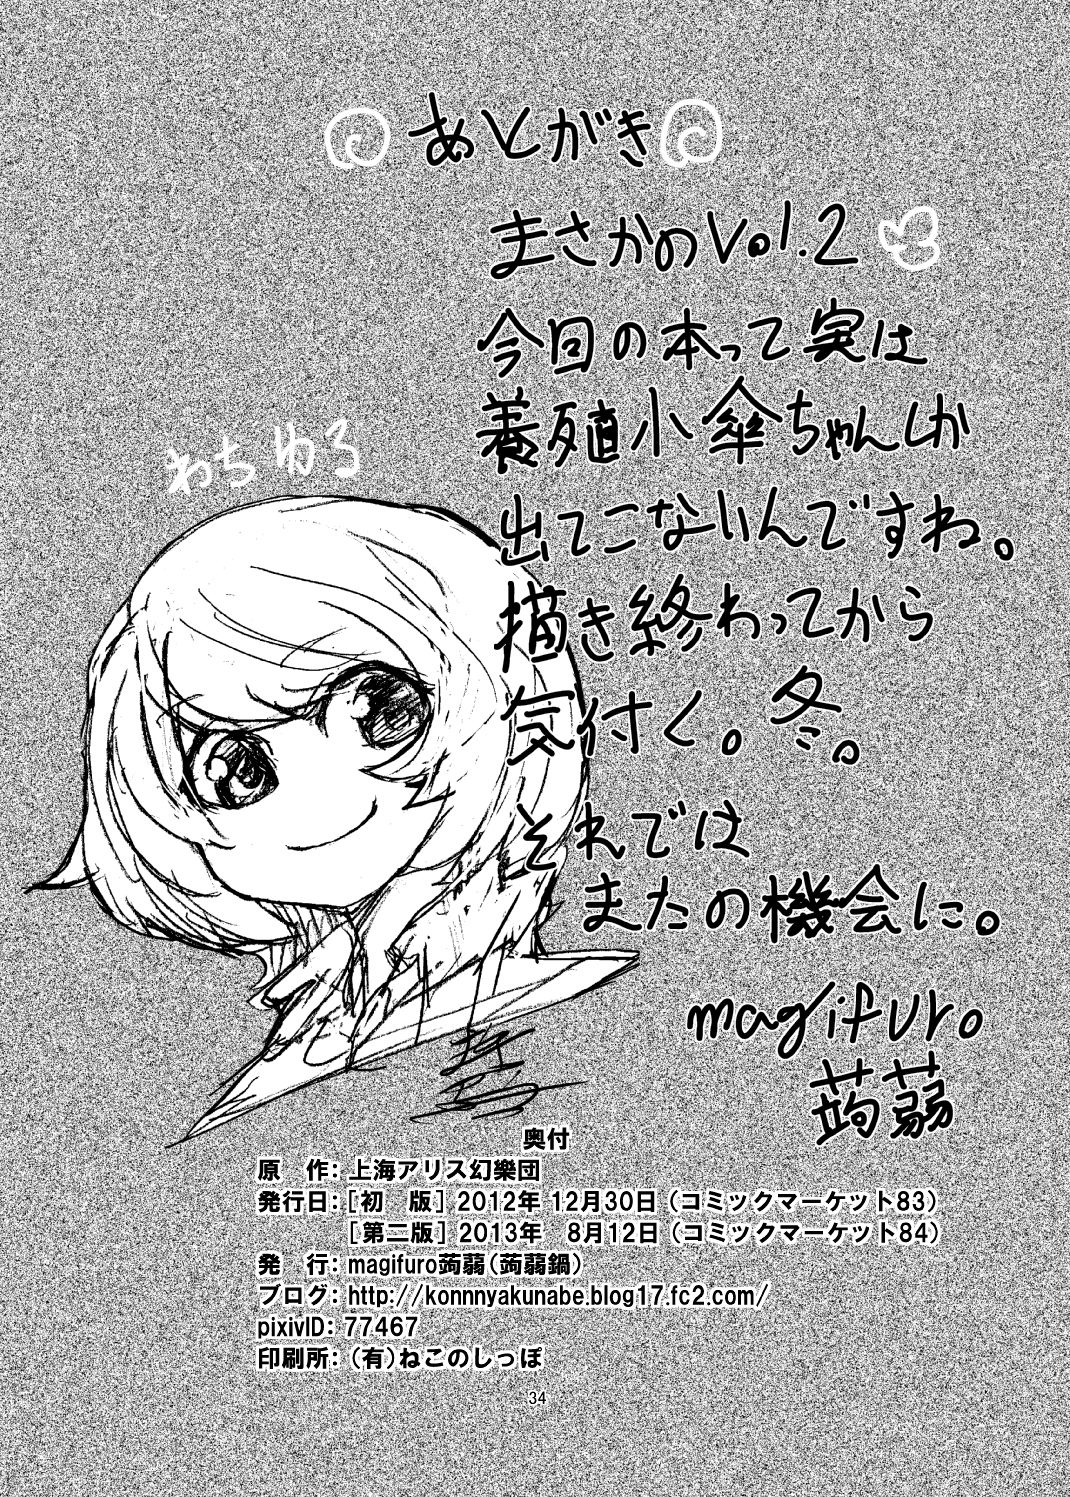 あとがき
まさかのVol.2
今日の本って実は
養殖小傘ちゃんしか
出てこないんですね。
描き終わってから
気付く。冬。
それでは
またの機会に。
magifuro
蒟蒻
わちゅろ
奥付
原　作： 上海アリス幻樂団
発行日： ［初　版］ 2012年 12月30日 （コミックマーケット83）
［第二版］ 2013年　8月12日 （コミックマーケット84）
発　行： magifuro蒟蒻（蒟蒻鍋）
ブログ： http://konnnyakunabe.blog17.fc2.com/
pixivID： 77467
印刷所： （有）ねこのしっぽ
34